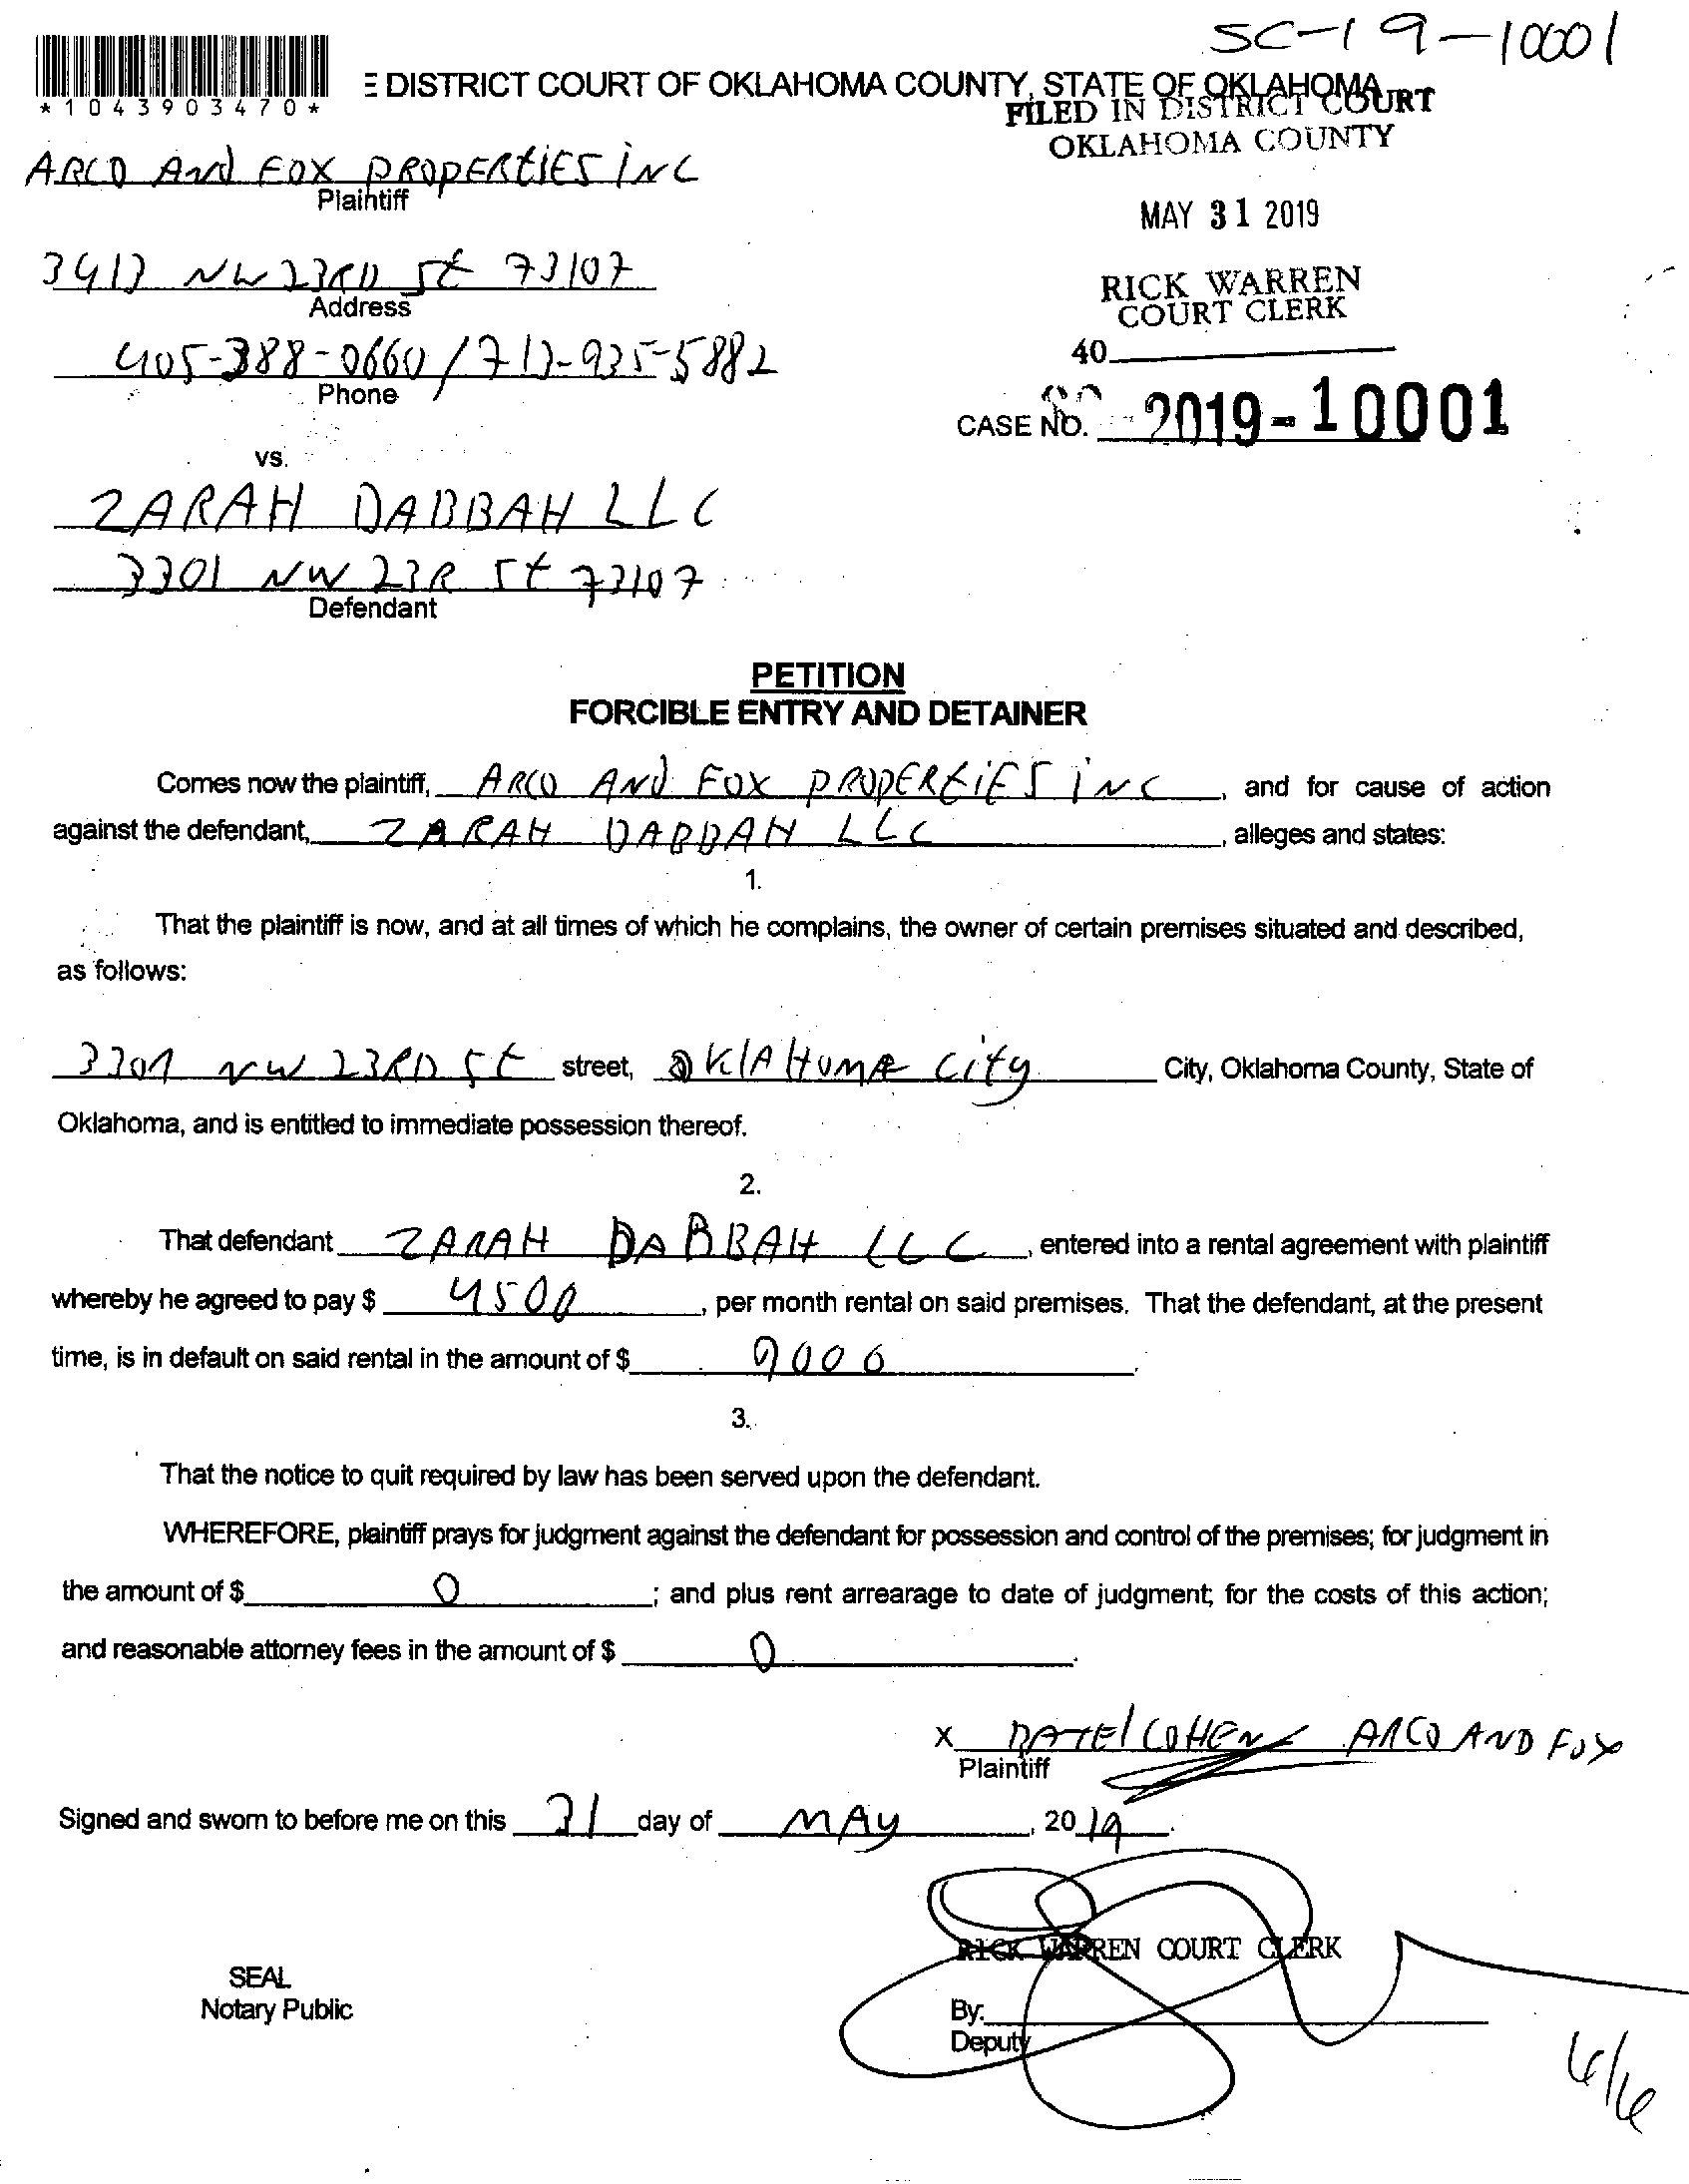 SC-19-10001
*1043903470*
E DISTRICT COURT OF OKLAHOMA COUNTY, STATE OF OKLAHOMA
FILED IN DISTRICT COURT
OKLAHOMA COUNTY
ARCO And FOX PROPERtiES iNC
Plaintiff
MAY 31 2019
3413 NW 23RD St 73107
Address
RICK WARREN
COURT CLERK
405-388-0660 / 713-925-5882
Phone
40
CASE NO. 2019-10001
vs.
ZARAH DABBAH LLC
3301 NW 23R St 73107
Defendant
PETITION
FORCIBLE ENTRY AND DETAINER
Comes now the plaintiff, ARCO AND FOX PROPERtiES iNC, and for cause of action
against the defendant, ZARAH DABBAH LLC, alleges and states:
1.
That the plaintiff is now, and at all times of which he complains, the owner of certain premises situated and described,
as follows:
3301 NW 23RD St street, OKlAHOMA City City, Oklahoma County, State of
Oklahoma, and is entitled to immediate possession thereof.
2.
That defendant ZARAH DABBAH LLC, entered into a rental agreement with plaintiff
whereby he agreed to pay $ 4500, per month rental on said premises. That the defendant, at the present
time, is in default on said rental in the amount of $ 9000.
3.
That the notice to quit required by law has been served upon the defendant.
WHEREFORE, plaintiff prays for judgment against the defendant for possession and control of the premises; for judgment in
the amount of $ 0; and plus rent arrearage to date of judgment; for the costs of this action;
and reasonable attorney fees in the amount of $ 0.
X DATEl COHEN ARCO AND FOX
Plaintiff
Signed and sworn to before me on this 31 day of MAy, 2019.
RICK WARREN COURT CLERK
SEAL
Notary Public
By:
Deputy
6/6